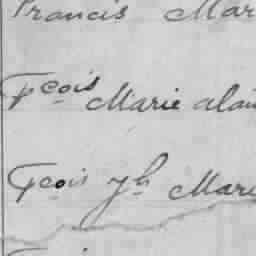 Francis Mar
Fçois Marie alai
Fçois Jh Mari